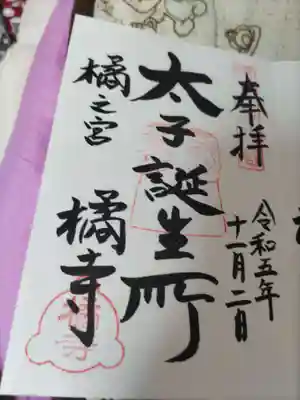 奉拝
令和五年
十一月二日
太子誕生所
橘之宮
橘寺